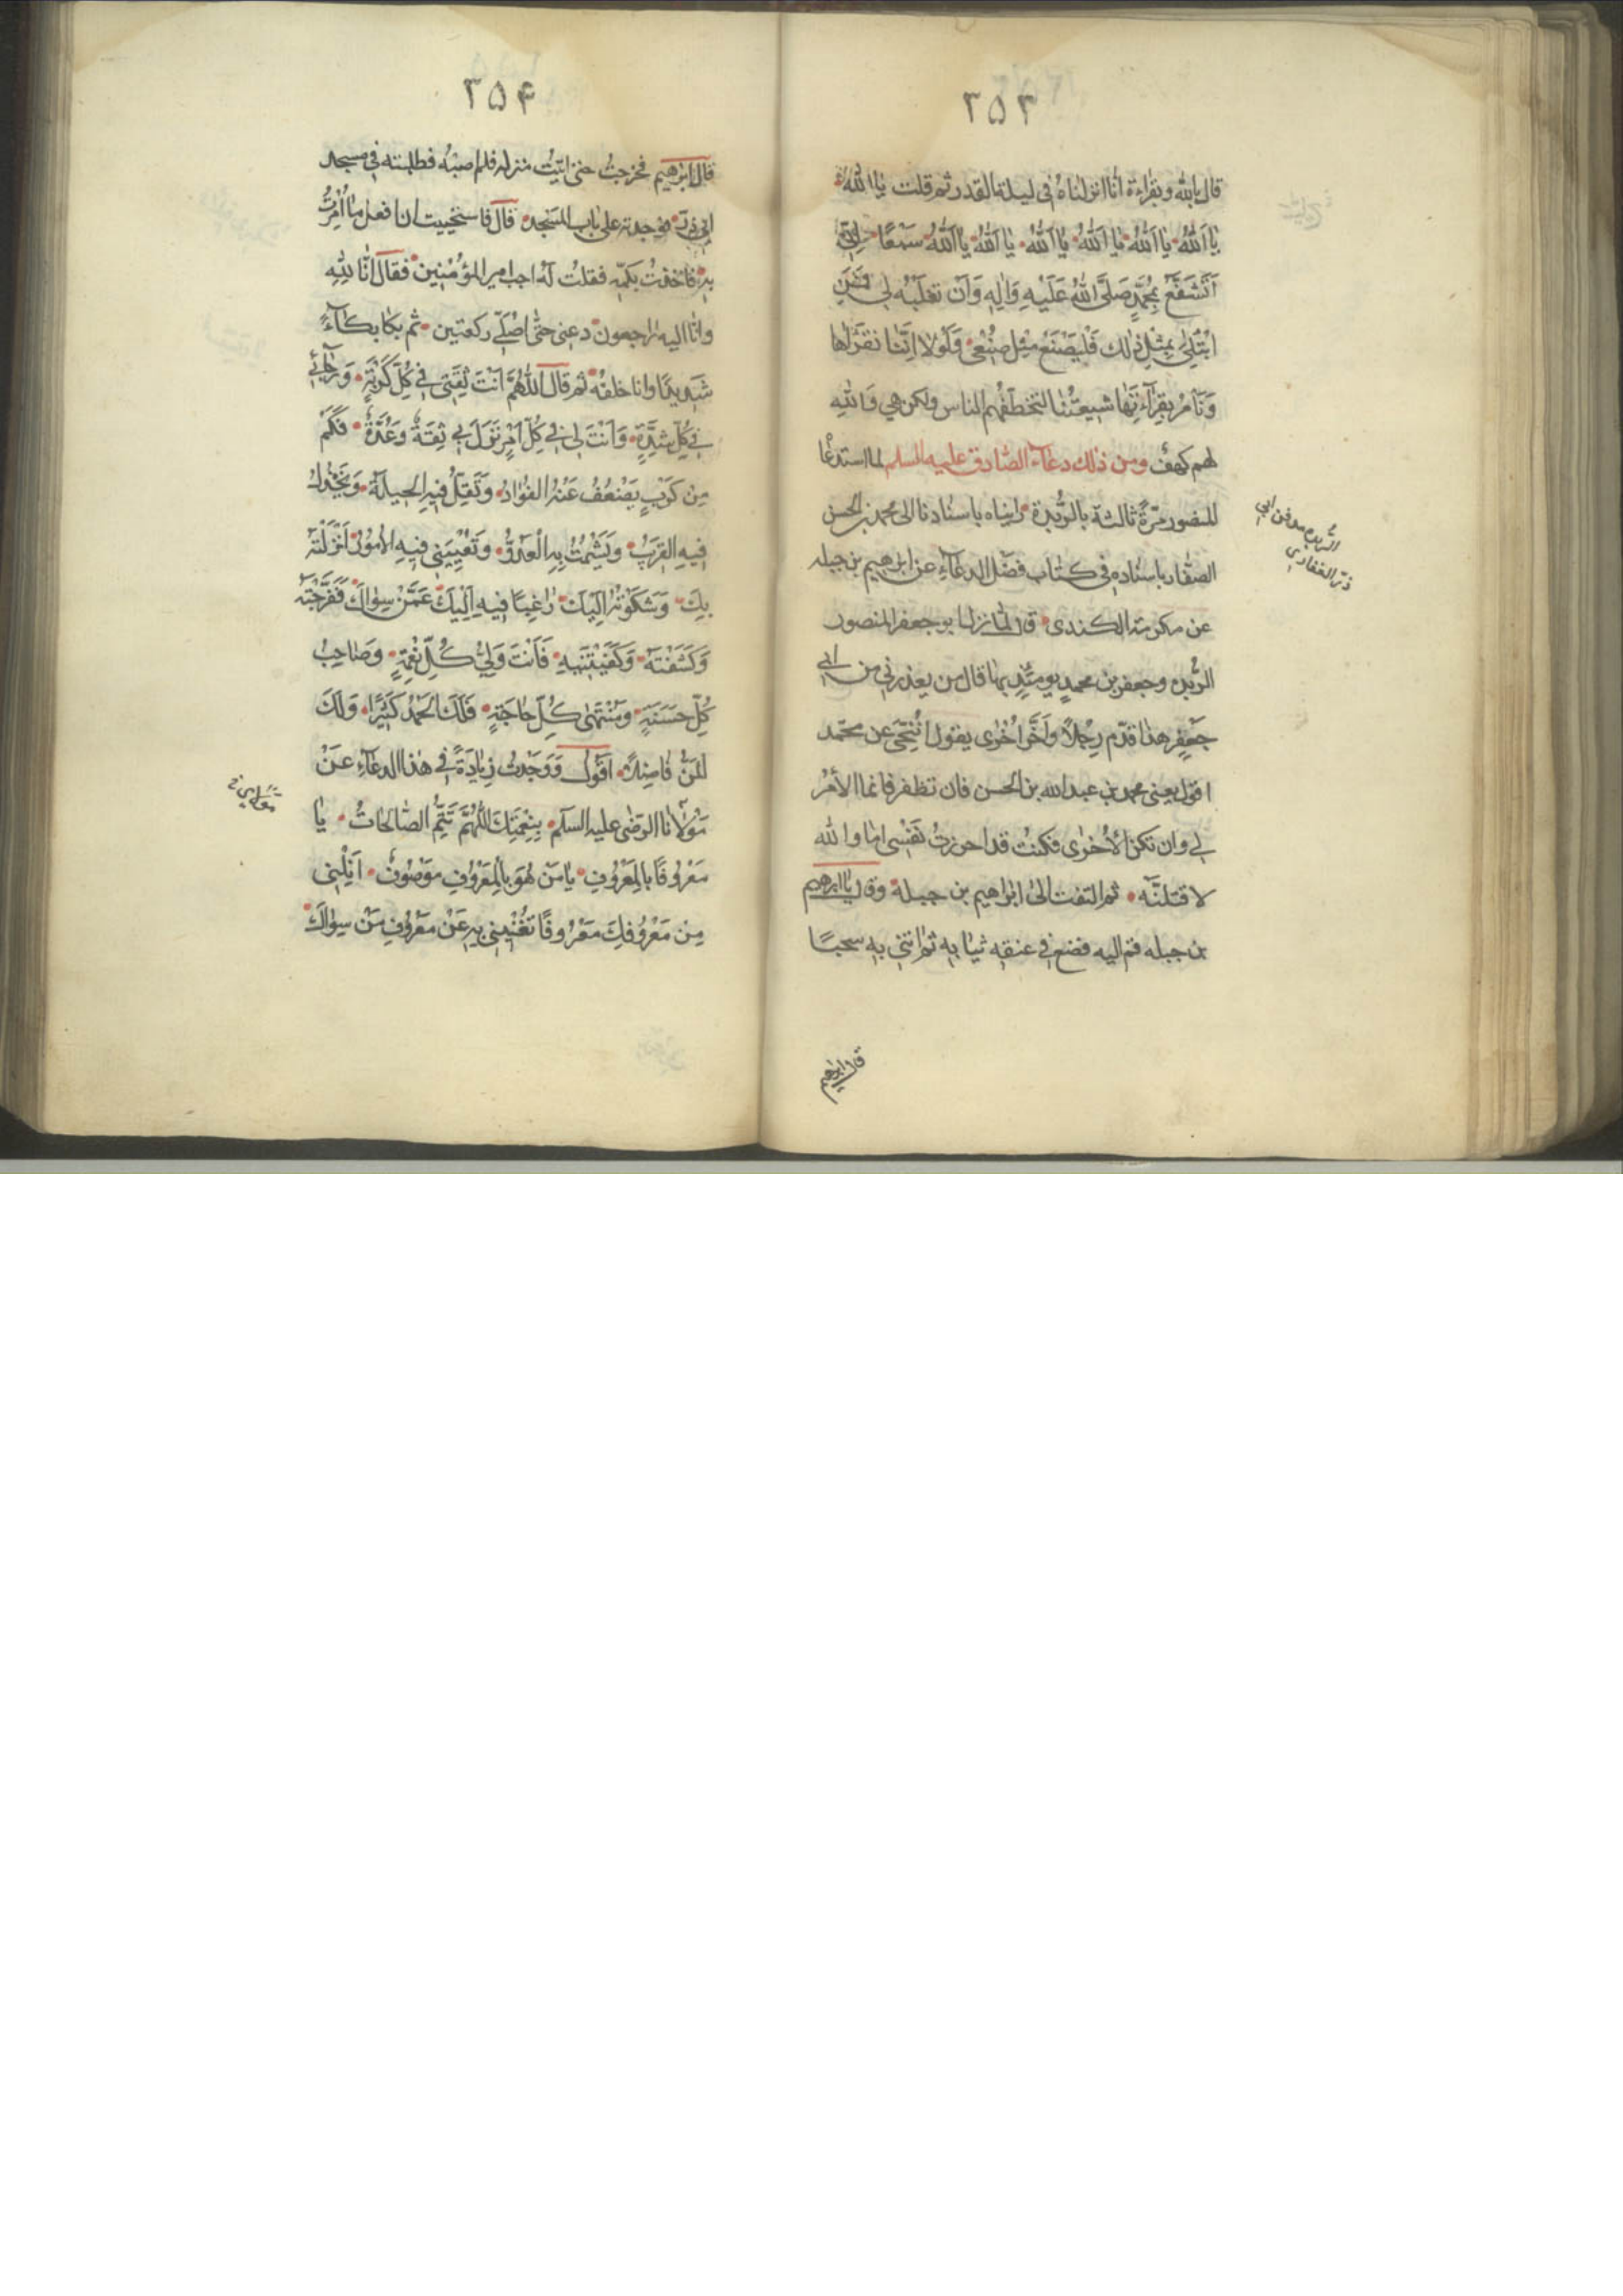 ٣٥٣
قال بالله وبقراءة انا انزلناه في ليلة القدر ثم قلت يا الله
يا الله يا الله يا الله يا الله يا الله يا الله سبعا اني
اتشفع بمحمد صلى الله عليه واله وان تغلبه لي فمن
ابتلي بمثل ذلك فليصنع مثل صنعي ولولا اننا نقرأها
ونامر بقراءتها شيعتنا لتخطفهم الناس ولكن هي والله
لهم كهف ومن ذلك دعاء الصادق عليه السلم لما استدعاه
المنصور مرة ثالثة بالربذة رايناه باسنادنا الى محمد بن الحسن
الصفار باسناده في كتاب فضل الدعاء عن ابرهيم بن جبله
عن مكرمة الكندي قال لما نزل ابو جعفر المنصور
الربذه وجعفر بن محمد يومئذ بها قال من يعذرني من ابي
جعفر هذا قدم رجلا واخر اخرى يقول اتنحى عن محمد
اقول يعني محمد بن عبد الله بن الحسن فان تظفر فانما الأمر
لي وان تكن الأخرى فكنت قد احرزت نفسي اما والله
لاقتلنه ثم التفت الى ابراهيم بن جبلة وقال يا ابرهيم
بن جبله قم اليه فضع في عنقه ثيابه ثم ائتني به سحبا
الربذه مدفن ابي
ذر الغفاري
قال ابرهيم
٣٥۴
قال ابرهيم فخرجت حتى اتيت منزله فلم اصبه فطلبته في مسجد
ابي ذر فوجدته على باب المسجد قال فاستحييت ان افعل ما امرت
به فاخذت بكمه فقلت له اجب امير المؤمنين فقال انا لله
وانا اليه راجعون دعني حتى اصلي ركعتين ثم بكا بكاء
شديدا وانا خلفه ثم قال اللهم انت ثقتي في كل كربة ورجائي
في كل شدة وانت لي في كل امر نزل بي ثقة وعدة فكم
من كرب يضعف عنه الفؤاد وتقل فيه الحيلة ويخذل
فيه القريب ويشمت به العدو وتعييني فيه الامور انزلته
بك وشكوته اليك راغبا فيه اليك عمن سواك ففرجته
وكشفته وكفيتنيه فانت ولي كل نعمة وصاحب
كل حسنة ومنتهى كل حاجة فلك الحمد كثيرا ولك
المن فاضلا اقول ووجدت زيادة في هذا الدعاء عن
مولانا الرضى عليه السلم بنعمتك اللهم تتم الصالحات يا
معروفا بالمعروف يا من هو بالمعروف موصوف انلني
من معروفك معروفا تغنيني به عن معروف من سواك